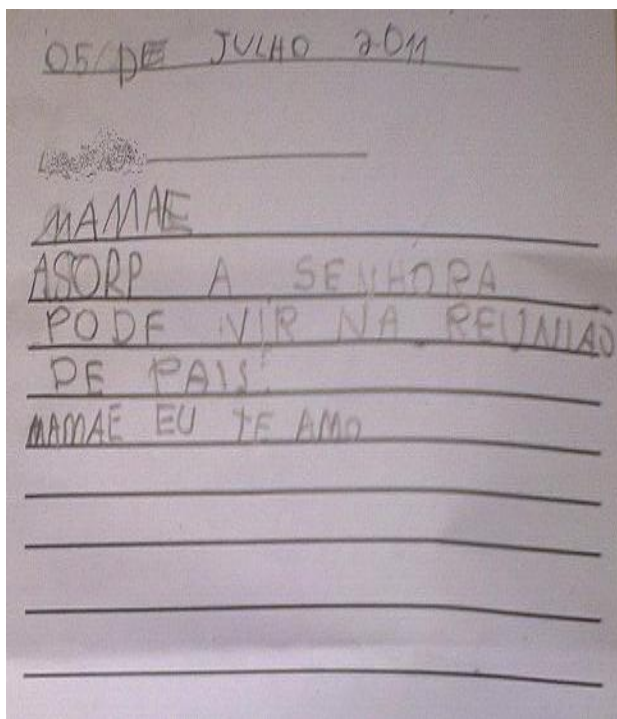 05/DE JULHO 2011
MAMAE
ASORP A SENHORA
PODE VIR NA REUNIAO
DE PAIS.
MAMAE EU TE AMO